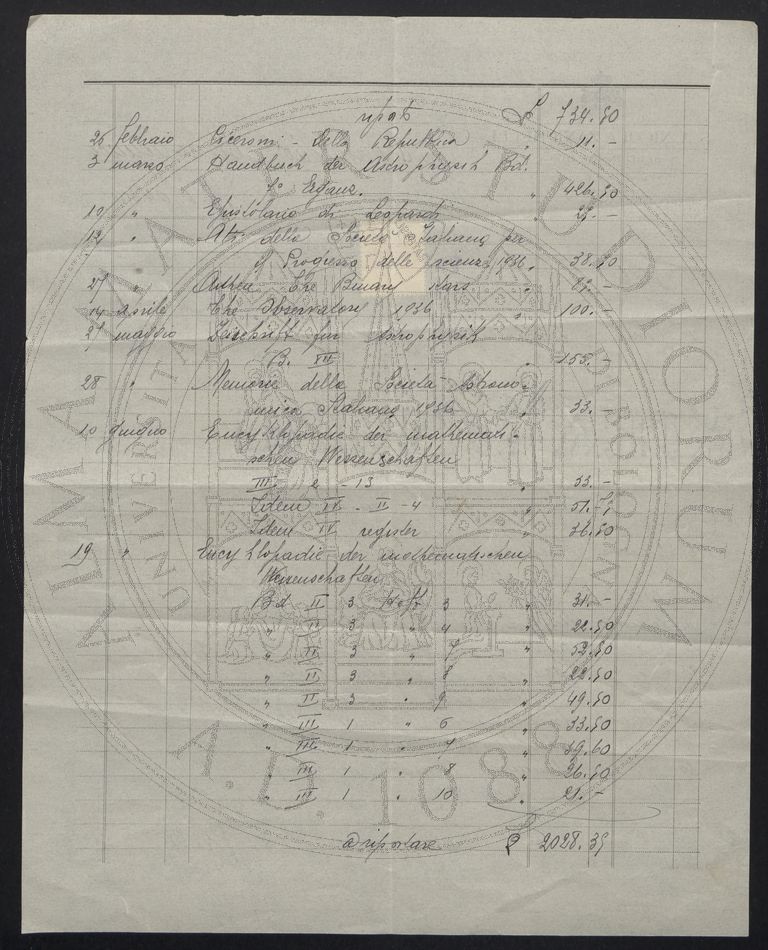 riporto £ 734.50
25 febbraio Ciceroni - Della Republica " 11.-
3 marzo Handbuch der Astrophysik Bd.
Erganz. " 426.50
10 " Epistolario di Leopardi "
12 " Atti della Società Italiana per
il Progresso delle scienze 1936 " 38.50
27 " The Binary stars "
14 Aprile The Observatory 1936 " 100.-
21 maggio für Astrophysik
B. XII " 155.-
28 " Memorie della Società Astrono-
mica Italiana 1936 " 33.-
10 giugno Encyklopadie der mathemati-
schen Wissenschaften
III 2 - 13 " 33.-
Idem IV - II - 4 "
Idem IV register " 36.50
19 " Encyklopadie der mathematischen
Wissenschaften
Bd II 3 Heft 3 " 31.-
" II 3 " 4 " 22.50
" II 3 " 7 " 52.50
" II 3 " 8 " 22.50
" II 3 " 9 " 49.50
" III 1 " 6 " 33.50
" III 1 " 7 " 39.60
" III 1 " 8 " 26.50
" III 1 " 10 " 21.-
A riportare £ 2028.35
ALMA MATER STUDIORUM
UNIVERSITÀ DI BOLOGNA
A.D. 1088